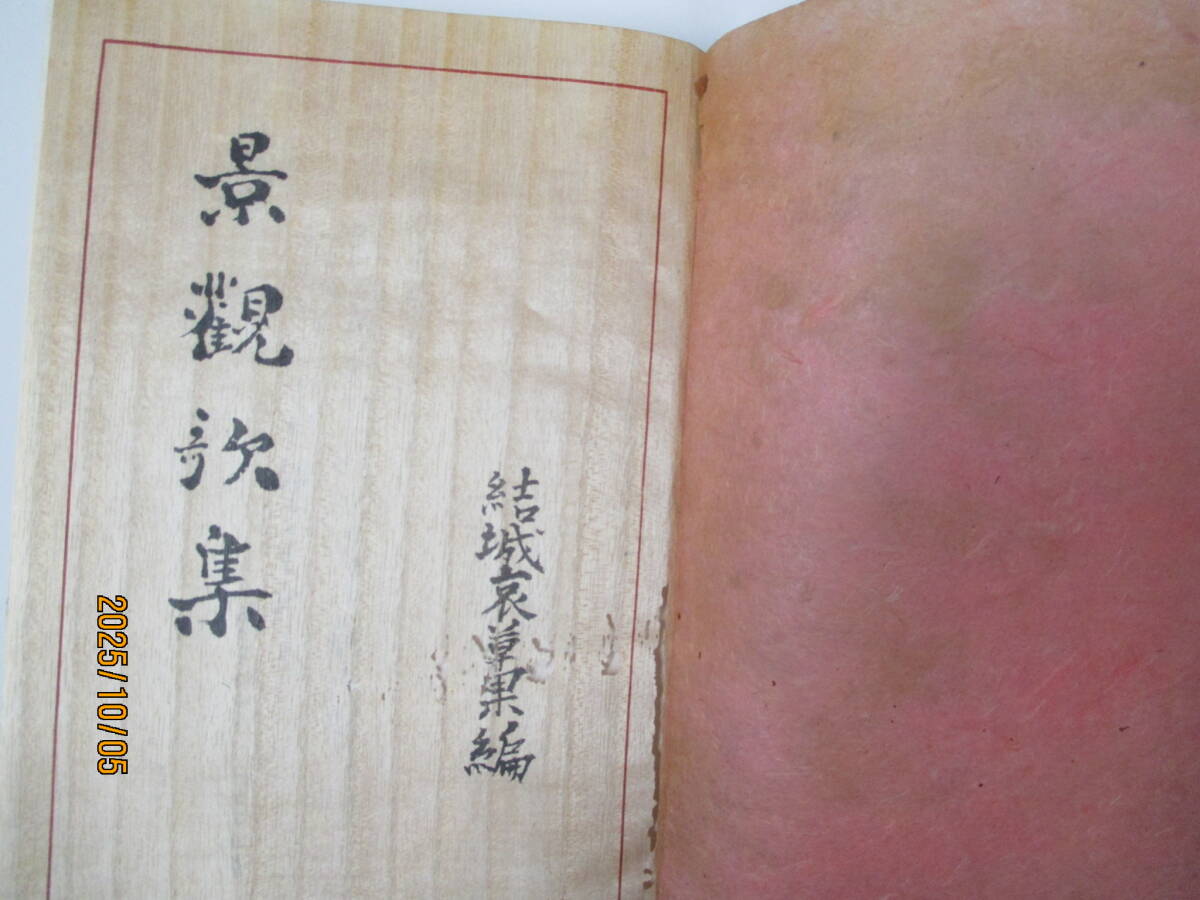 結城哀草果編
景觀歌集
2025/10/05